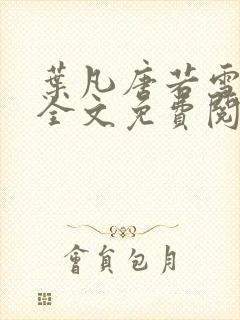 葉凡唐若雪
全文免費閱
會員包月